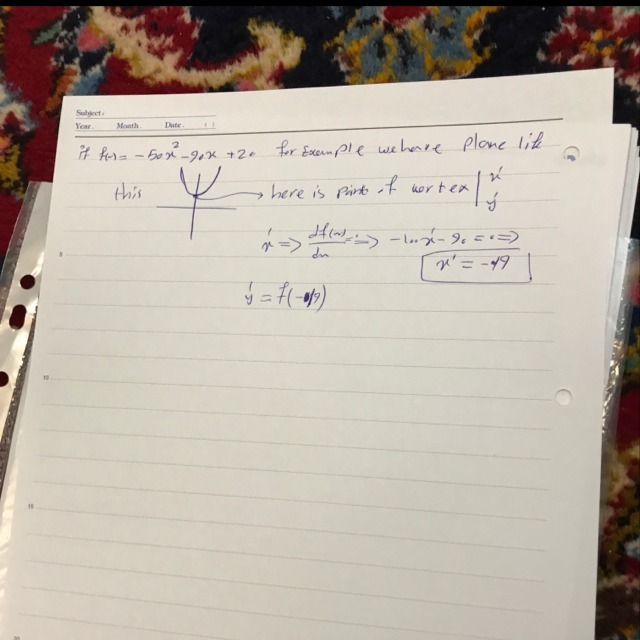 Subject:
Year. Month. Date. ( )
if f(x) = -50x² - 90x + 20 for Example we have plane like
this → here is point of vortex | x′ y′
x′ ⇒ df(x)/dx = 0 ⇒ -100x′ - 90 = 0 ⇒
x′ = -0/9
y′ = f(-0/9)
5
10
15
20